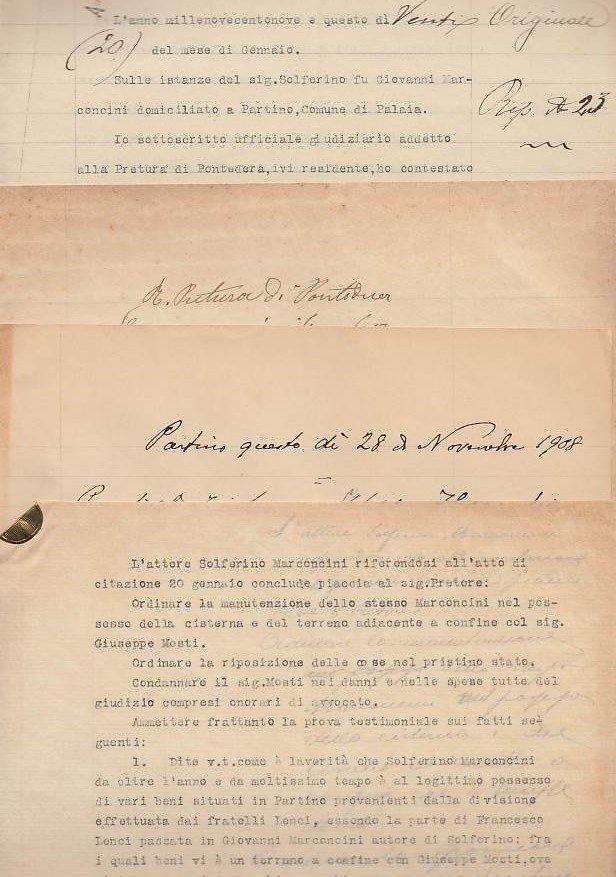 L'anno millenovecentonove e questo dì Venti Originale
(20) del mese di Gennaio.
Sulle istanze del sig.Solferino fu Giovanni Mar-
concini domiciliato a Partino,Comune di Palaia.
Rep. N 23
Io sottoscritto ufficiale giudiziario addetto
alla Pretura di Pontedera,ivi residente,ho contestato
R. Pretura di Pontedera
Partino questo dì 28 di Novembre 1908
L'attore Solferino Marconcini riferendosi all'atto di
citazione 20 gennaio conclude piaccia al sig.Pretore:
Ordinare la manutenzione dello stesso Marconcini nel pos-
sesso della cisterna e del terreno adiacente a confine col sig.
Giuseppe Mosti.
Ordinare la riposizione delle cose nel pristino stato.
Condannare il sig.Mosti nei danni e nelle spese tutte del
giudizio compresi onorari di avvocato.
Ammettere frattanto la prova testimoniale sui fatti se-
guenti:
1. Dite v.t.come è laverità che Solferino Marconcini
da oltre l'anno e da moltissimo tempo è al legittimo possesso
di vari beni situati in Partino provenienti dalla divisione
effettuata dai fratelli Lenci, essendo la parte di Francesco
Lenci passata in Giovanni Marconcini autore di Solferino; fra
i quali beni vi è un terreno a confine con Giuseppe Mosti,ove